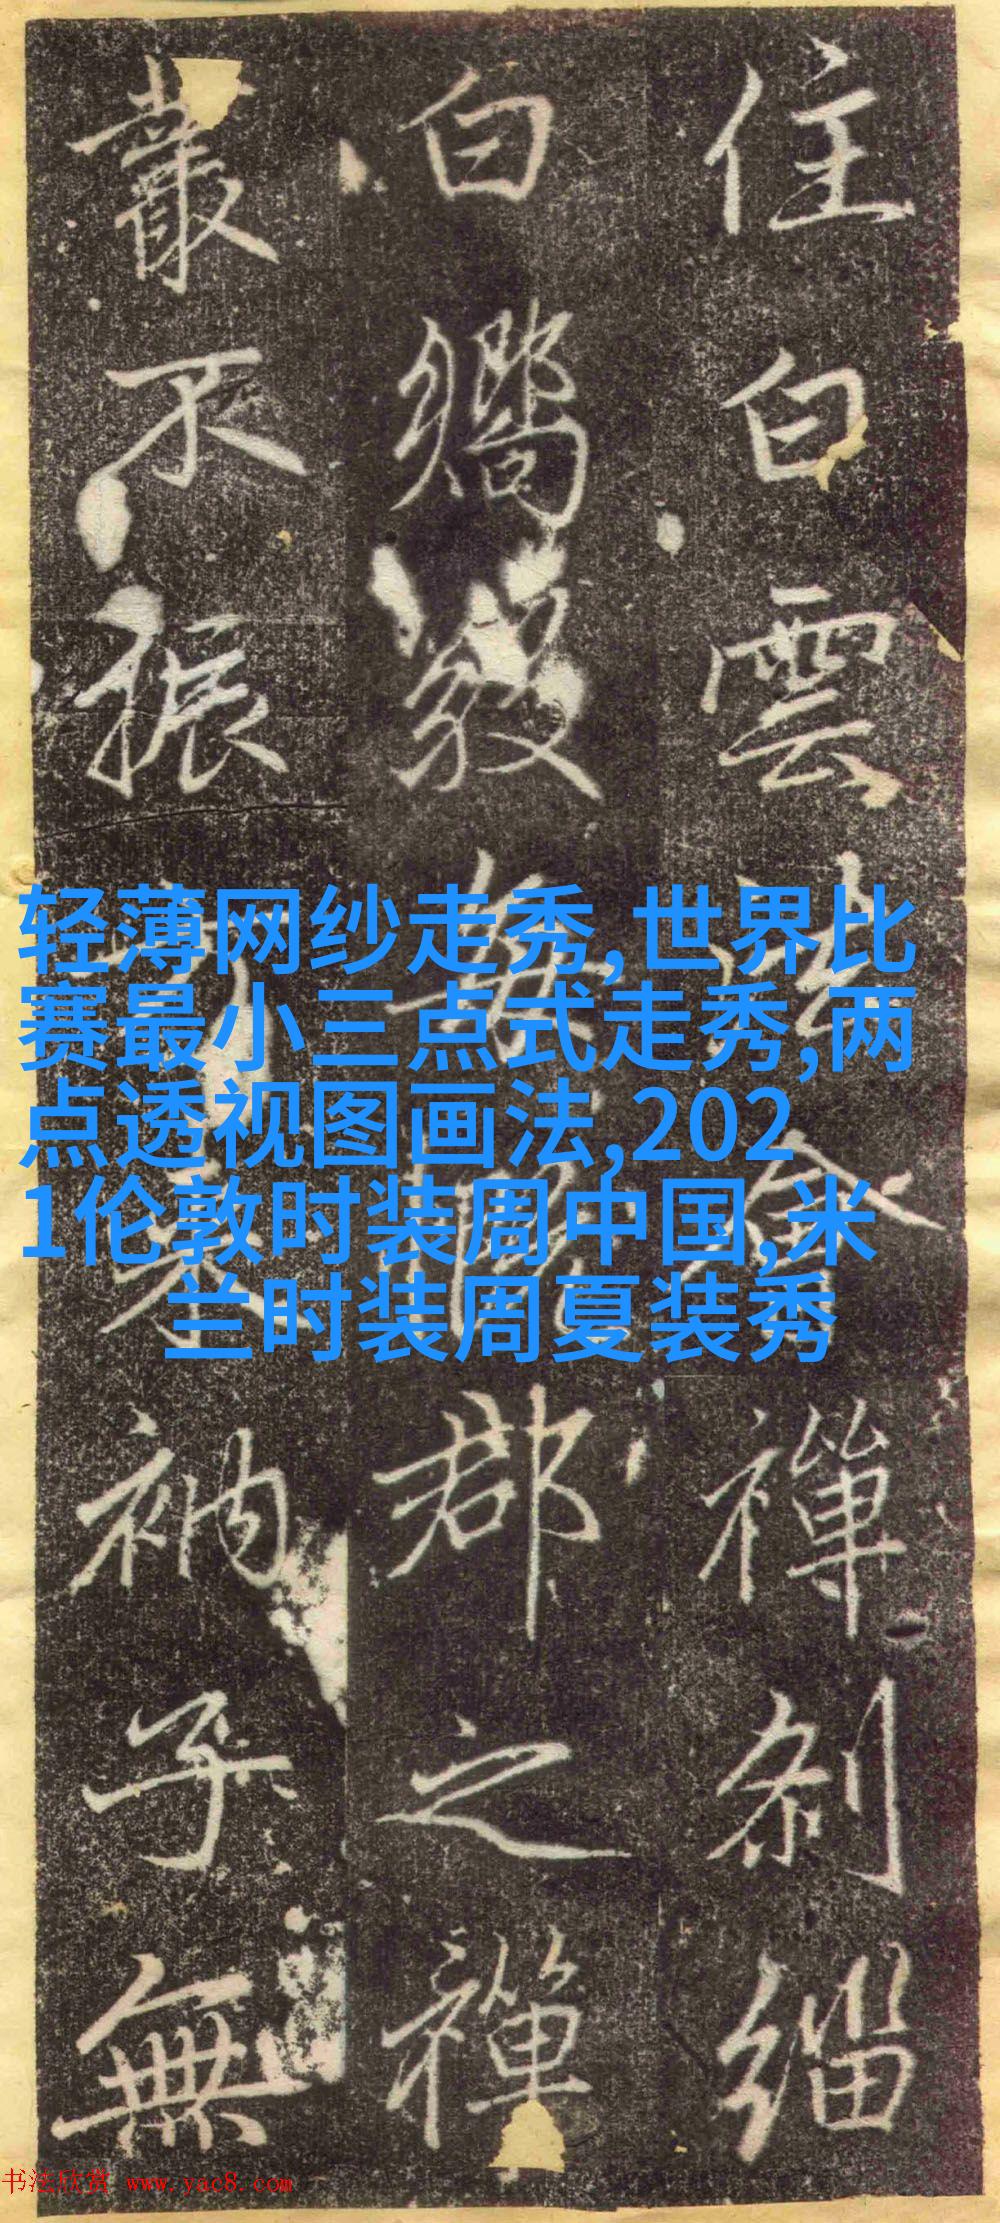 住白雲禪刹緇
白嚮教郡之禪
叢不振衲子無
轻薄网纱走秀,世界比
赛最小三点式走秀,两
点透视图画法,202
1伦敦时装周中国,米
兰时装周夏装秀
书法欣赏 www.yac8.com